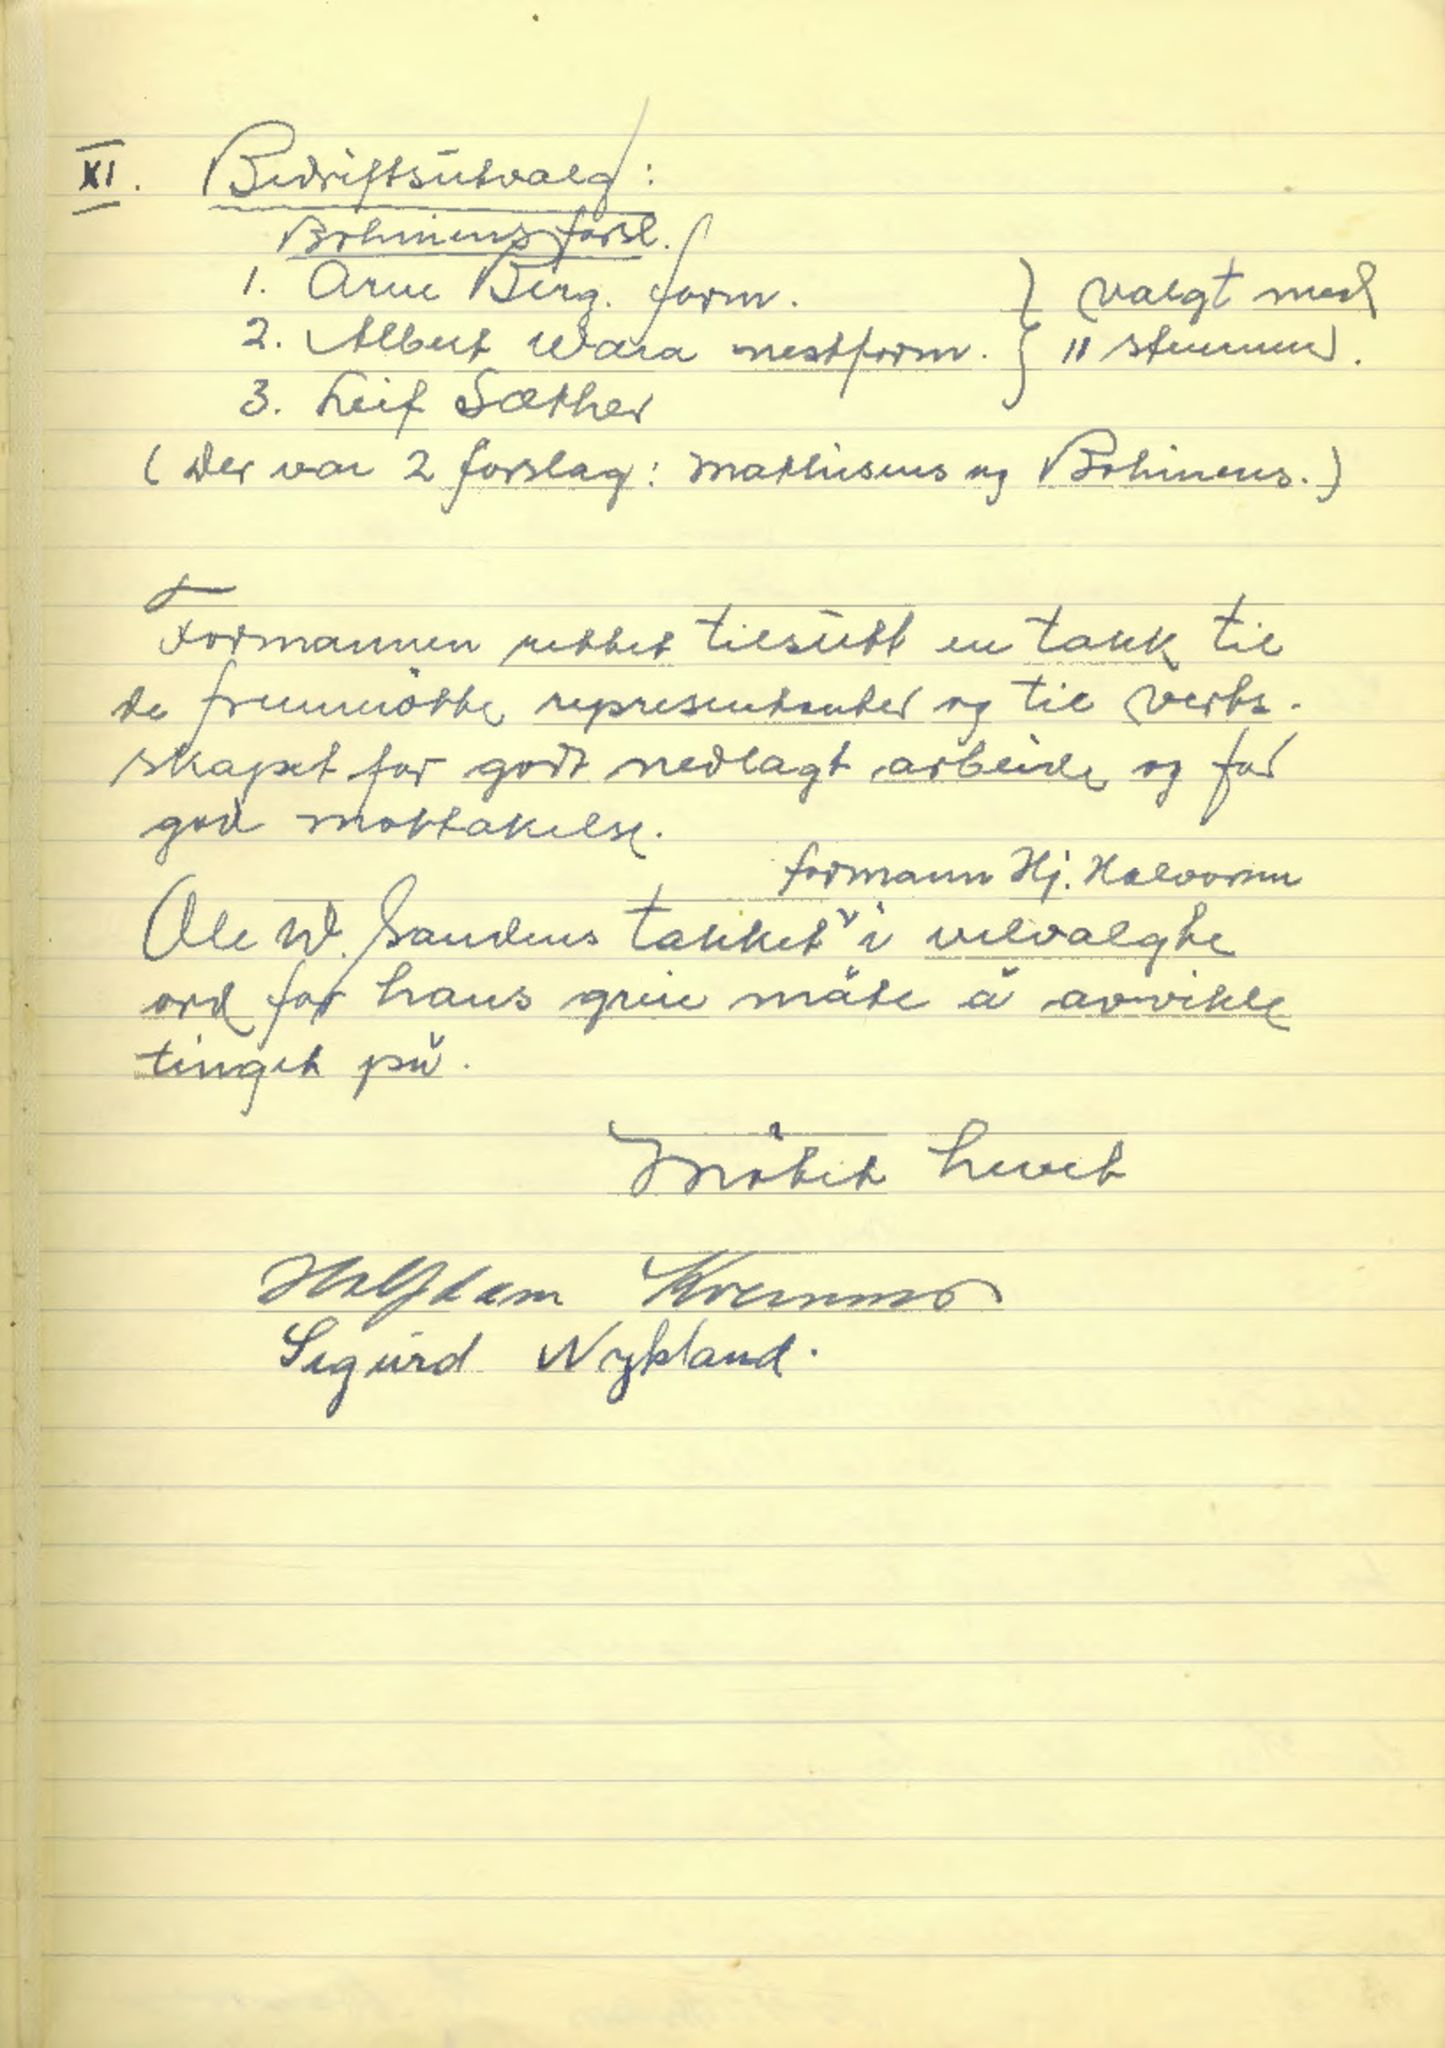 XI. Bedriftsutvalg:
Bohinens forsl.
1. Arne Berg. form. } valgt med
2. Albert Wara nestform. } 11 stemmer.
3. Leif Sæther
(Der var 2 forslag: Mathisens og Bohinens.)
Formannen rettet tilsutt en takk til
de fremmötte representanter og til verts-
skapet for godt nedlagt arbeide og for
god mottakelse.
formann Hj. Halvorsen
Ole W. Sandens takket i velvalgte
ord for hans greie måte å avvikle
tinget på.
Mötet hevet
Halfdan
Sigurd Nykland.